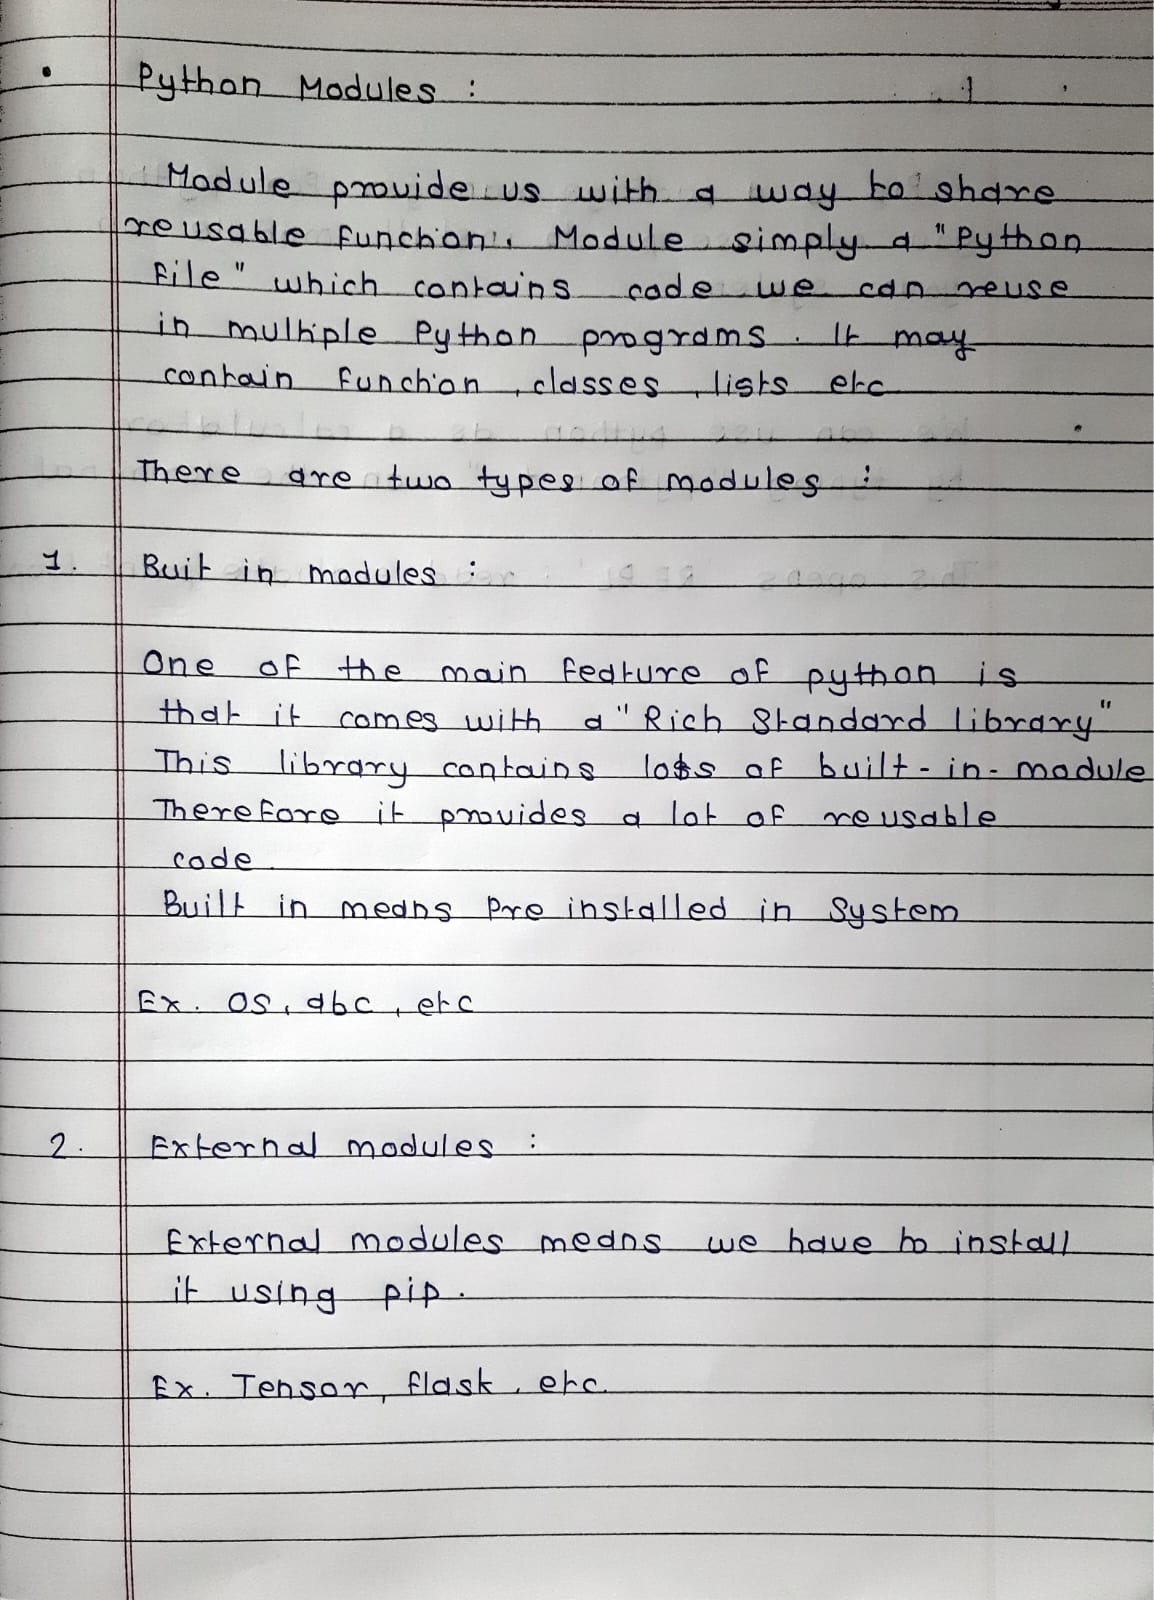 • Python Modules :
Module provide us with a way to share
reusable function. Module simply a "Python
File" which contains code we can reuse
in multiple Python programs. It may
contain function, classes, lists etc
There are two types of modules :
1. Buit in modules :
One of the main feature of python is
that it comes with a "Rich Standard library"
This library contains lots of built-in-module
Therefore it provides a lot of reusable
code
Built in means Pre installed in System
Ex. OS, abc, etc
2. External modules :
External modules means we have to install
it using pip.
Ex. Tensor, flask, etc.